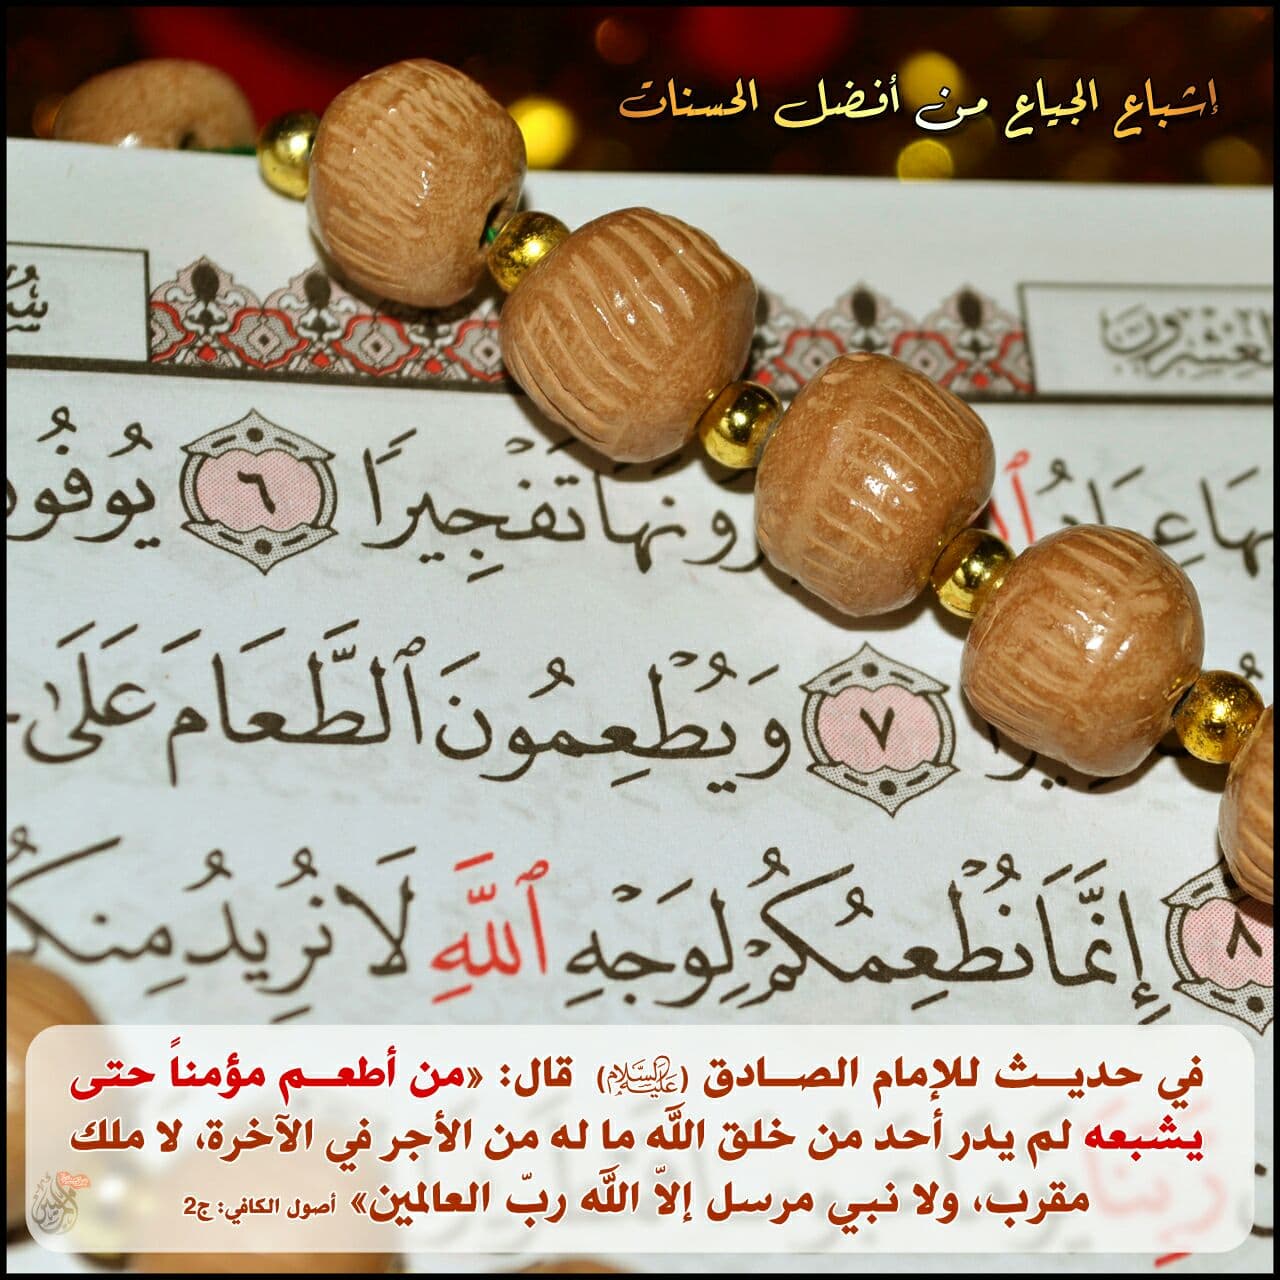 إشباع الجياع من أفضل الحسنات
عِبَادُ
تَفْجِيرًا ٦ يُوفُو
٧ وَيُطْعِمُونَ ٱلطَّعَامَ عَلَىٰ
٨ إِنَّمَا نُطْعِمُكُمْ لِوَجْهِ ٱللَّهِ لَا نُرِيدُ مِنكُ
في حديث للإمام الصادق (عليه السلام) قال: «من أطعم مؤمناً حتى
يشبعه لم يدر أحد من خلق الله ما له من الأجر في الآخرة، لا ملك
مقرب، ولا نبي مرسل إلاّ الله ربّ العالمين» أصول الكافي: ج2